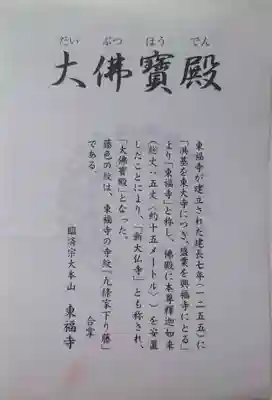 だい ぶつ ほう でん
大佛寶殿
東福寺が建立された建長七年(一二五五)に
「洪基を東大寺につき、盛業を興福寺にとる」
より「東福寺」と称し、佛殿に本尊釋迦如来
(総丈:五丈〈約十五メートル〉)を安置
したことにより、「新大仏寺」とも称され、
「大佛寶殿」となった。
藤色の紋は、東福寺の寺紋「九條家下り藤」
である。
合掌
臨済宗大本山 東福寺